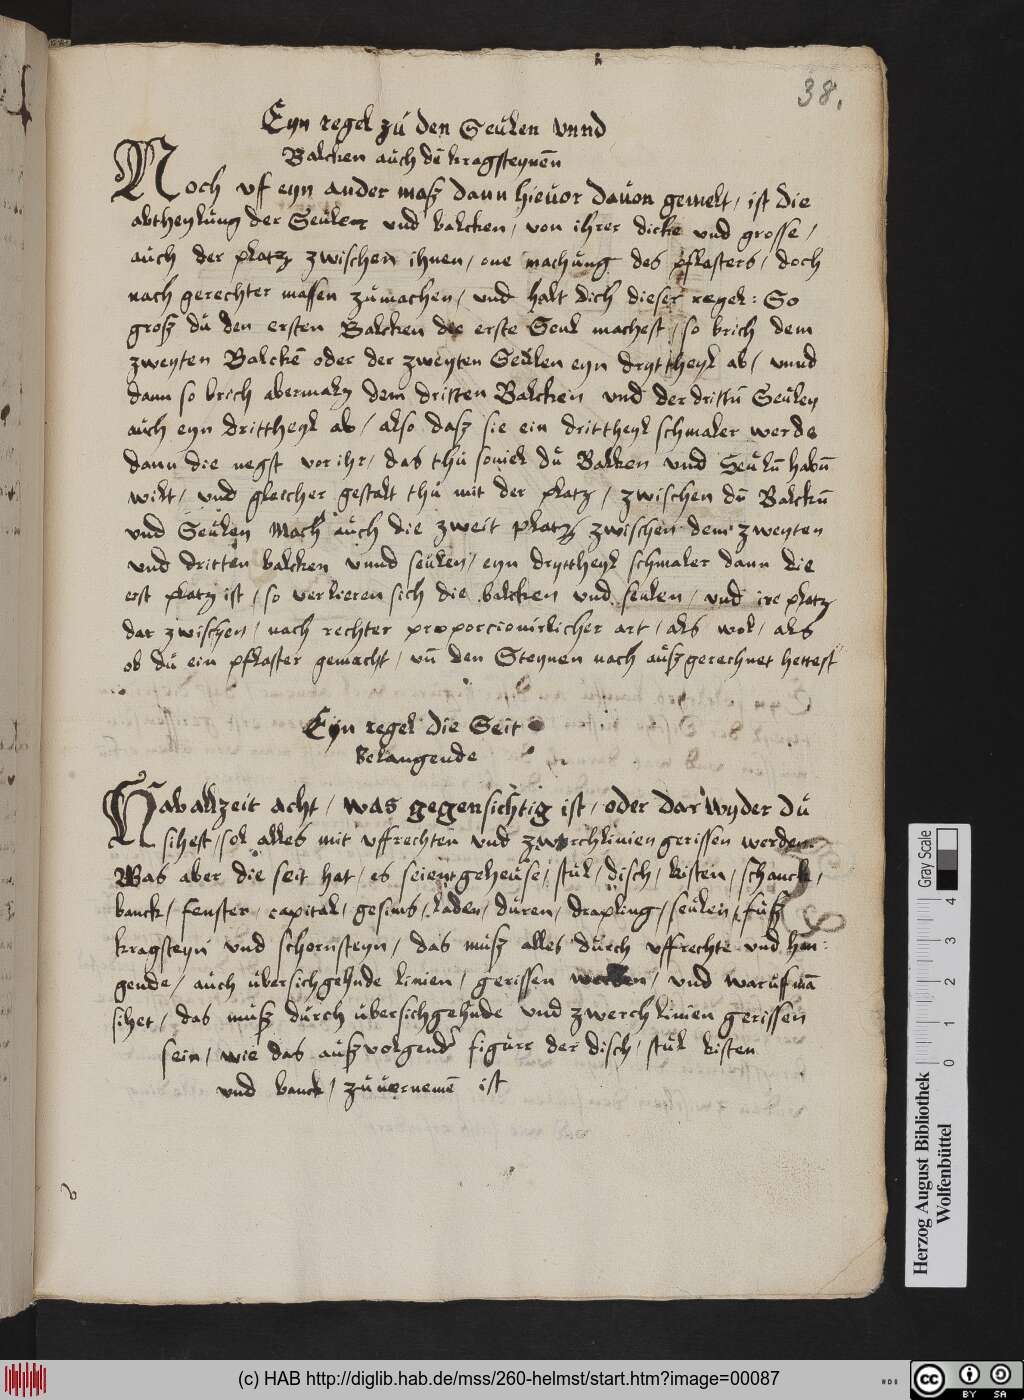 38.
Eyn regel zů den Seůlen vnnd
Balcken aůch dē kragsteynen̄
Noch vf eyn ander masz dann hieůor daůon gemelt / ist die
abtheylůng der Seůlen vnd balcken / von ihrer dicke vnd grosse /
aůch der platz zwischen ihnen / one machůng des pflasters / doch
nach gerechter massen zůmachen / vnd halt dich dieser regel: So
grosz dů den ersten Balcken die erste Seul machest / so brich dem
zweyten Balckē oder der zweyten Seůlen eyn dryttheyl ab / vnnd
dann so brich abermalz dem dritten Balcken vnd der drittn̄ Seůlen
aůch eyn drittheyl ab / also dasz sie ein drittheyl schmaler werde
dann die negst vor ihr / das thů souiel dů Balken vnd Seůln̄ habn̄
wilt / vnd gleicher gestalt thů mit der platz / zwischen dn̄ Balckn̄
vnd Seůlen Mach aůch die zweit platz zwischen dem zweyten
vnd dritten balcken vnnd seůlen / eyn dryttheyl schmaler dann die
erst platz ist / so verlieren sich die balcken vnd seulen / vnd ire platz
dar zwischen / nach rechter proporcionirlicher art / als wol / als
ob dů ein pflaster gemacht / vn̄ den Steynen nach aůszgerechnet hettest
Eyn regel die Seit
Belangende
Hab allzeit acht / was gegensichtig ist / oder darwyder dů
sihest / sol alles mit vffrechten vnd zwerchlinien gerissen werden
Was aber die seit hat / es seient geheůse / stůl / disch / kisten / schanck /
banck / fenster / capital / gesims / laden / důren / drapling / seůlen / fůsz
kragsteyn vnd schornsteyn / das můsz alles důrch vffrechte vnd han:
gende / aůch ůbersichgehnde linien / gerissen werden / vnd warůf mā
sihet / das můsz důrch ůbersichgehnde vnd zwerch linien gerissen
sein / wie das aůszvolgend figůrr der disch / stůl kisten
vnd banck / zůůernemē ist
Gray Scale
0 1 2 3 4
Herzog August Bibliothek
Wolfenbüttel
(c) HAB http://diglib.hab.de/mss/260-helmst/start.htm?image=00087
HAB
cc BY SA